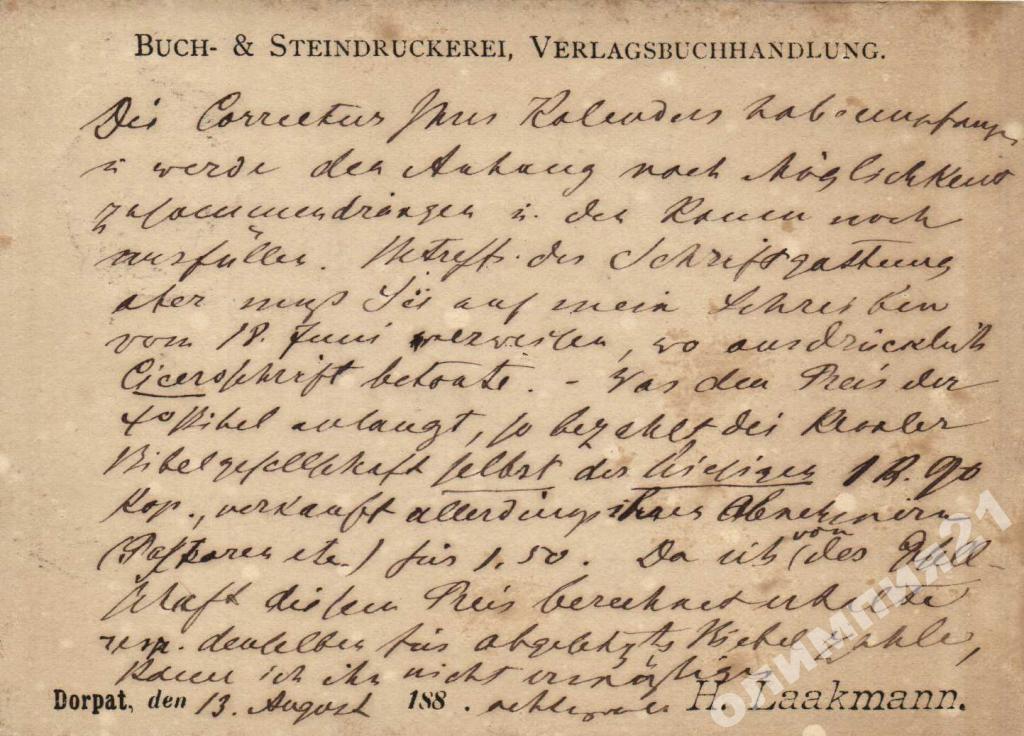 BUCH- & STEINDRUCKEREI, VERLAGSBUCHHANDLUNG.
Die Correctur Ihres Kalenders habe empfangen
u werde den Anhang nach Möglichkeit
zusammendrängen u. den Raum noch
ausfüllen. Betreffs der Schriftgattung
aber muß Sie auf mein Schreiben
vom 18. Juni verweisen, wo ausdrücklich
Ciceroschrift betonte. - Was den Preis der
4° Bibel anlangt, so bezahlt die Revaler
Bibelgesellschaft selbst der hiesigen 1 R. 90
Kop., verkauft allerdings ihren Abnehmern
(Pastoren etc.) für 1.50. Da ich von der Gesell-
schaft diesen Preis berechnet erhalte
resp. denselben für abgesetzte Bibel zahle,
kann ich ihn nicht ermäßigen
Dorpat, den 13. August 188 . achtungsvoll H. Laakmann.
ОЛИМПИЯ21